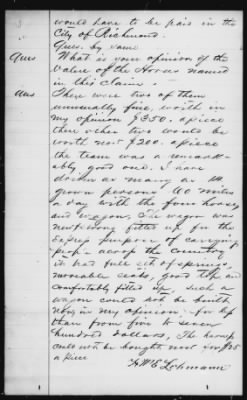 would have to be paid in the
City of Richmond.
Ques. by same
Ques What is your opinion of the
value of the Horses named
in this claim.
Ans There were two of them
unusually fine, worth in
my opinion $350. apiece
there other two would be
worth now $200. apiece
the team was a remark-
ably good one. I have
driven as many as
grown persons 60 miles
a day with the four horses
and wagon, The wagon was
new & strong fitted up for the
express purpose of carrying
across the country
it had full set of springs,
movable seats, good top and
comfortably fitted up, such a
wagon could not be built
now in my opinion for less
than from five to seven
hundred dollars, The harness
could not be bought now for $35
a piece
W E Lohmann